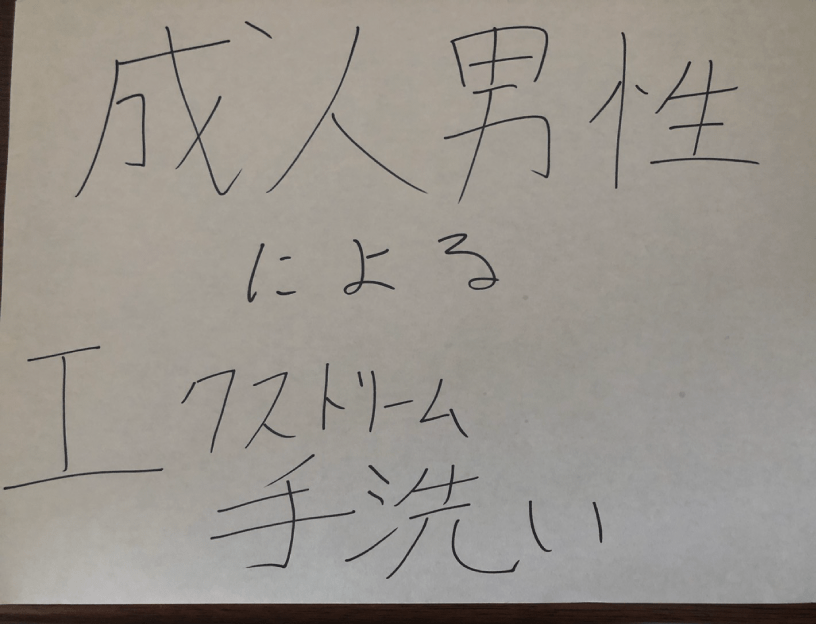 成人男性
による
エクストリーム
手洗い